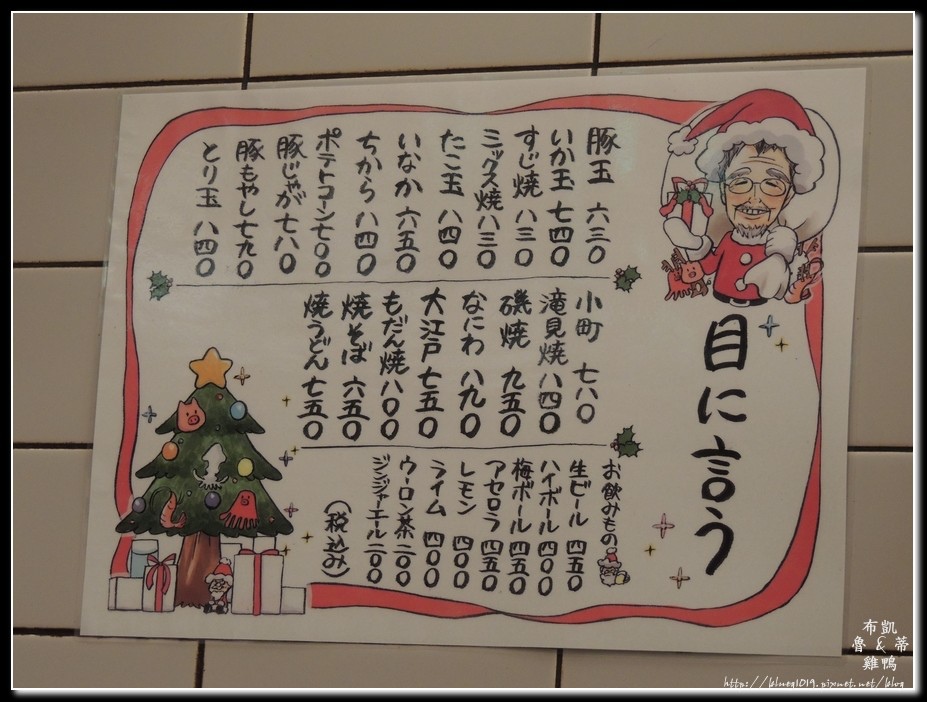 目に言う
豚玉 六三〇
いか玉 七四〇
すじ焼 八三〇
ミックス焼 八三〇
たこ玉 八四〇
いなか 六五〇
ちから 八四〇
ポテトコーン 七〇〇
豚じゃが 七八〇
豚もやし 七九〇
とり玉 八四〇
小町 七八〇
滝見焼 八四〇
磯焼 九五〇
なにわ 八九〇
大江戸 七五〇
もだん焼 八〇〇
焼そば 六五〇
焼うどん 七五〇
お飲みもの
生ビール 四五〇
ハイボール 四〇〇
梅ボール 四五〇
アセロラ 四五〇
レモン 四〇〇
ライム 四〇〇
ウーロン茶 二〇〇
ジンジャーエール 二〇〇
(税込み)
布凱
魯 & 蒂
雞鴨
http://blueq1019.pixnet.net/blog